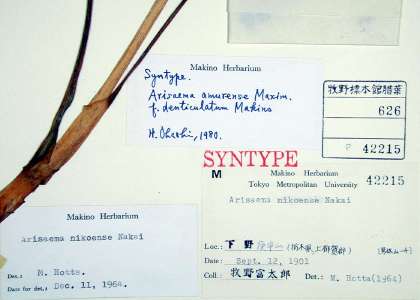 Makino Herbarium
Syntype.
Arisaema amurense Maxim.
f. denticulatum Makino
H. Ohashi, 1980.
牧野標本館腊葉
626
P 42215
SYNTYPE
M
Makino Herbarium
Tokyo Metropolitan University
42215
Arisaema nikoense Nakai
Loc.: 下野
Date: Sept. 12, 1901
Coll.: 牧野富太郎
Det.: M. Hotta(1964)
Makino Herbarium
Arisaema nikoense Nakai
Det.: M. Hotta.
Date for det.: Dec. 11, 1964.